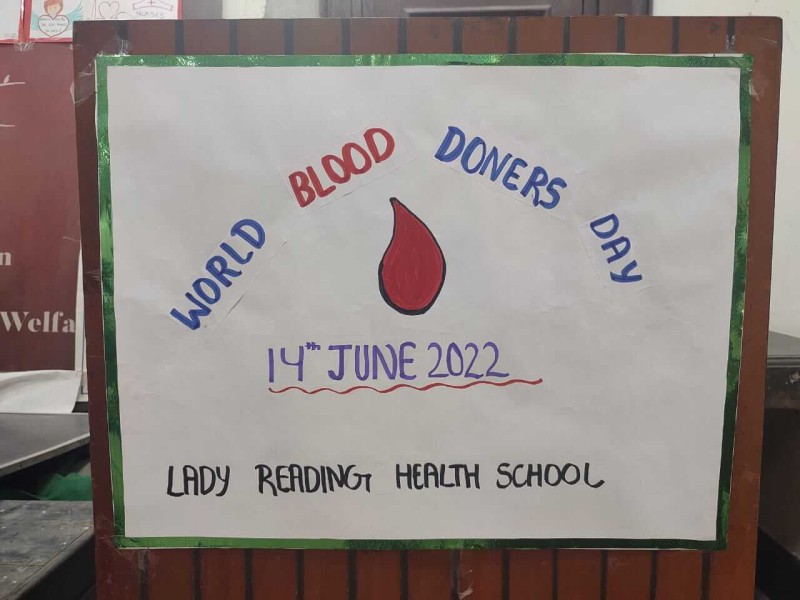 WORLD BLOOD DONERS DAY
14th JUNE 2022
LADY READING HEALTH SCHOOL
Welfa